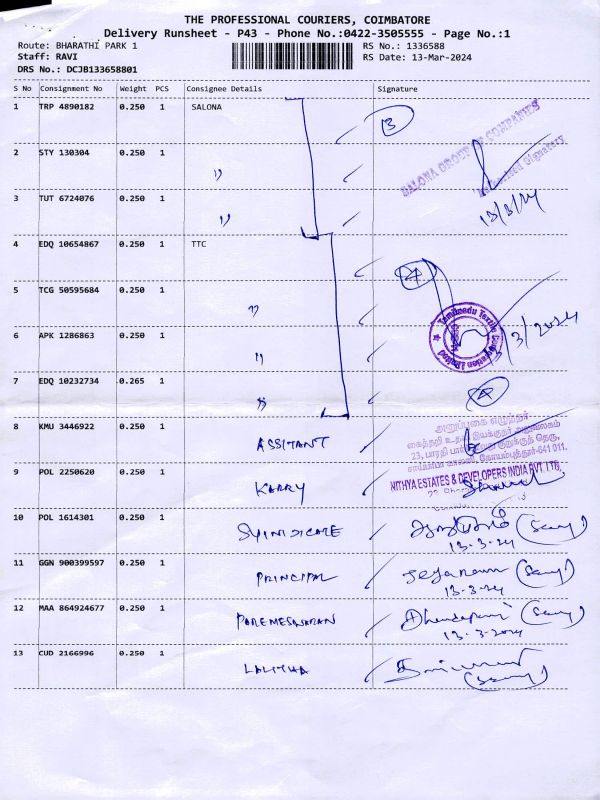 THE PROFESSIONAL COURIERS, COIMBATORE
Delivery Runsheet - P43 - Phone No.:0422-3505555 - Page No.:1
Route: BHARATHI PARK 1
RS No.: 1336588
Staff: RAVI
RS Date: 13-Mar-2024
DRS No.: DCJB133658801
S No Consignment No Weight PCS Consignee Details Signature
1 TRP 4890182 0.250 1 SALONA 3
SALONA GROUP OF COMPANIES
Authorised Signatory
2 STY 130304 0.250 1 "
3 TUT 6724076 0.250 1 "
13/3/24
4 EDQ 10654867 0.250 1 TTC 4
5 TCG 50595684 0.250 1 "
Tamilnadu Textile Corporation Limited
/3/2024
6 APK 1286863 0.250 1 "
7 EDQ 10232734 0.265 1 "
8 KMU 3446922 0.250 1 ASSITANT
அனுப்புகை எழுத்தர்
23, பாரதி பார்க்
கோயம்புத்தூர்-641 011.
9 POL 2250620 0.250 1 KARRY
NITHYA ESTATES & DEVELOPERS INDIA PVT LTD,
10 POL 1614301 0.250 1 SYINDICATE
13-3-24
11 GGN 900399597 0.250 1 PRINCIPAL Jeyaraman
13-3-24
12 MAA 864924677 0.250 1 PAREMESWARAN Dhandapani
13-3-2024
13 CUD 2166996 0.250 1 LALITHA